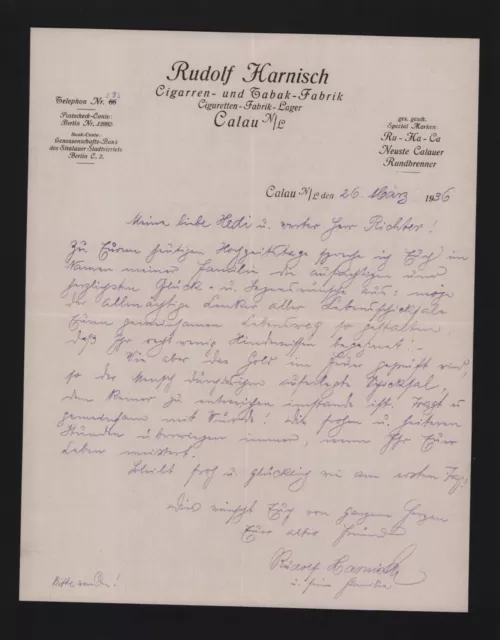 Rudolf Harnisch
Cigarren- und Tabak-Fabrik
Cigaretten-Fabrik-Lager
Calau N/L
Telephon Nr.
Postscheck-Conto:
Berlin Nr.
Bank-Conto:
Genossenschafts-Bank
des Stralauer Stadtviertels
Berlin C. 2.
ges. gesch.
Spezial Marken:
Ra-Ha-Ca
Neuste Calauer
Rundbrenner
Calau N/L den 26. März 1936
Meine liebe Hedi u. werter Herr Richter!
Zu Eurem heutigen Hochzeitstage spreche ich Euch im
Namen meiner Familie die aufrichtigen und
herzlichsten Glück- u. Segenswünsche aus: möge
der allmächtige Lenker aller Lebensschicksale
Euren gemeinsamen Lebensweg so gestalten,
daß Ihr recht wenig Hindernissen begegnet!
Wie aber das Gold im Feuer geprüft wird,
so der Mensch auferlegte Schicksal,
dem Keiner zu entweichen imstande ist. Tragt es
gemeinsam mit Würde! Die frohen u. heiteren
Stunden überwiegen immer, wenn Ihr Euer
Leben meistert.
Bleibt froh u. glücklich wie am ersten Tag!
Dies wünscht Euch von ganzem Herzen
Euer alter Freund
Rudolf Harnisch
u. seine Familie
Bitte wenden!